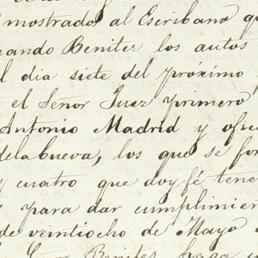 mostrado al Escribano qu
uando Benitez los autos
l dia siete del próximo
el Señor Juez primero
Antonio Madrid y ofic
delabueva, los que se for
y cuatro que doy fé tene
y para dar cumplimien
de veintiocho de Mayo
Benites haga